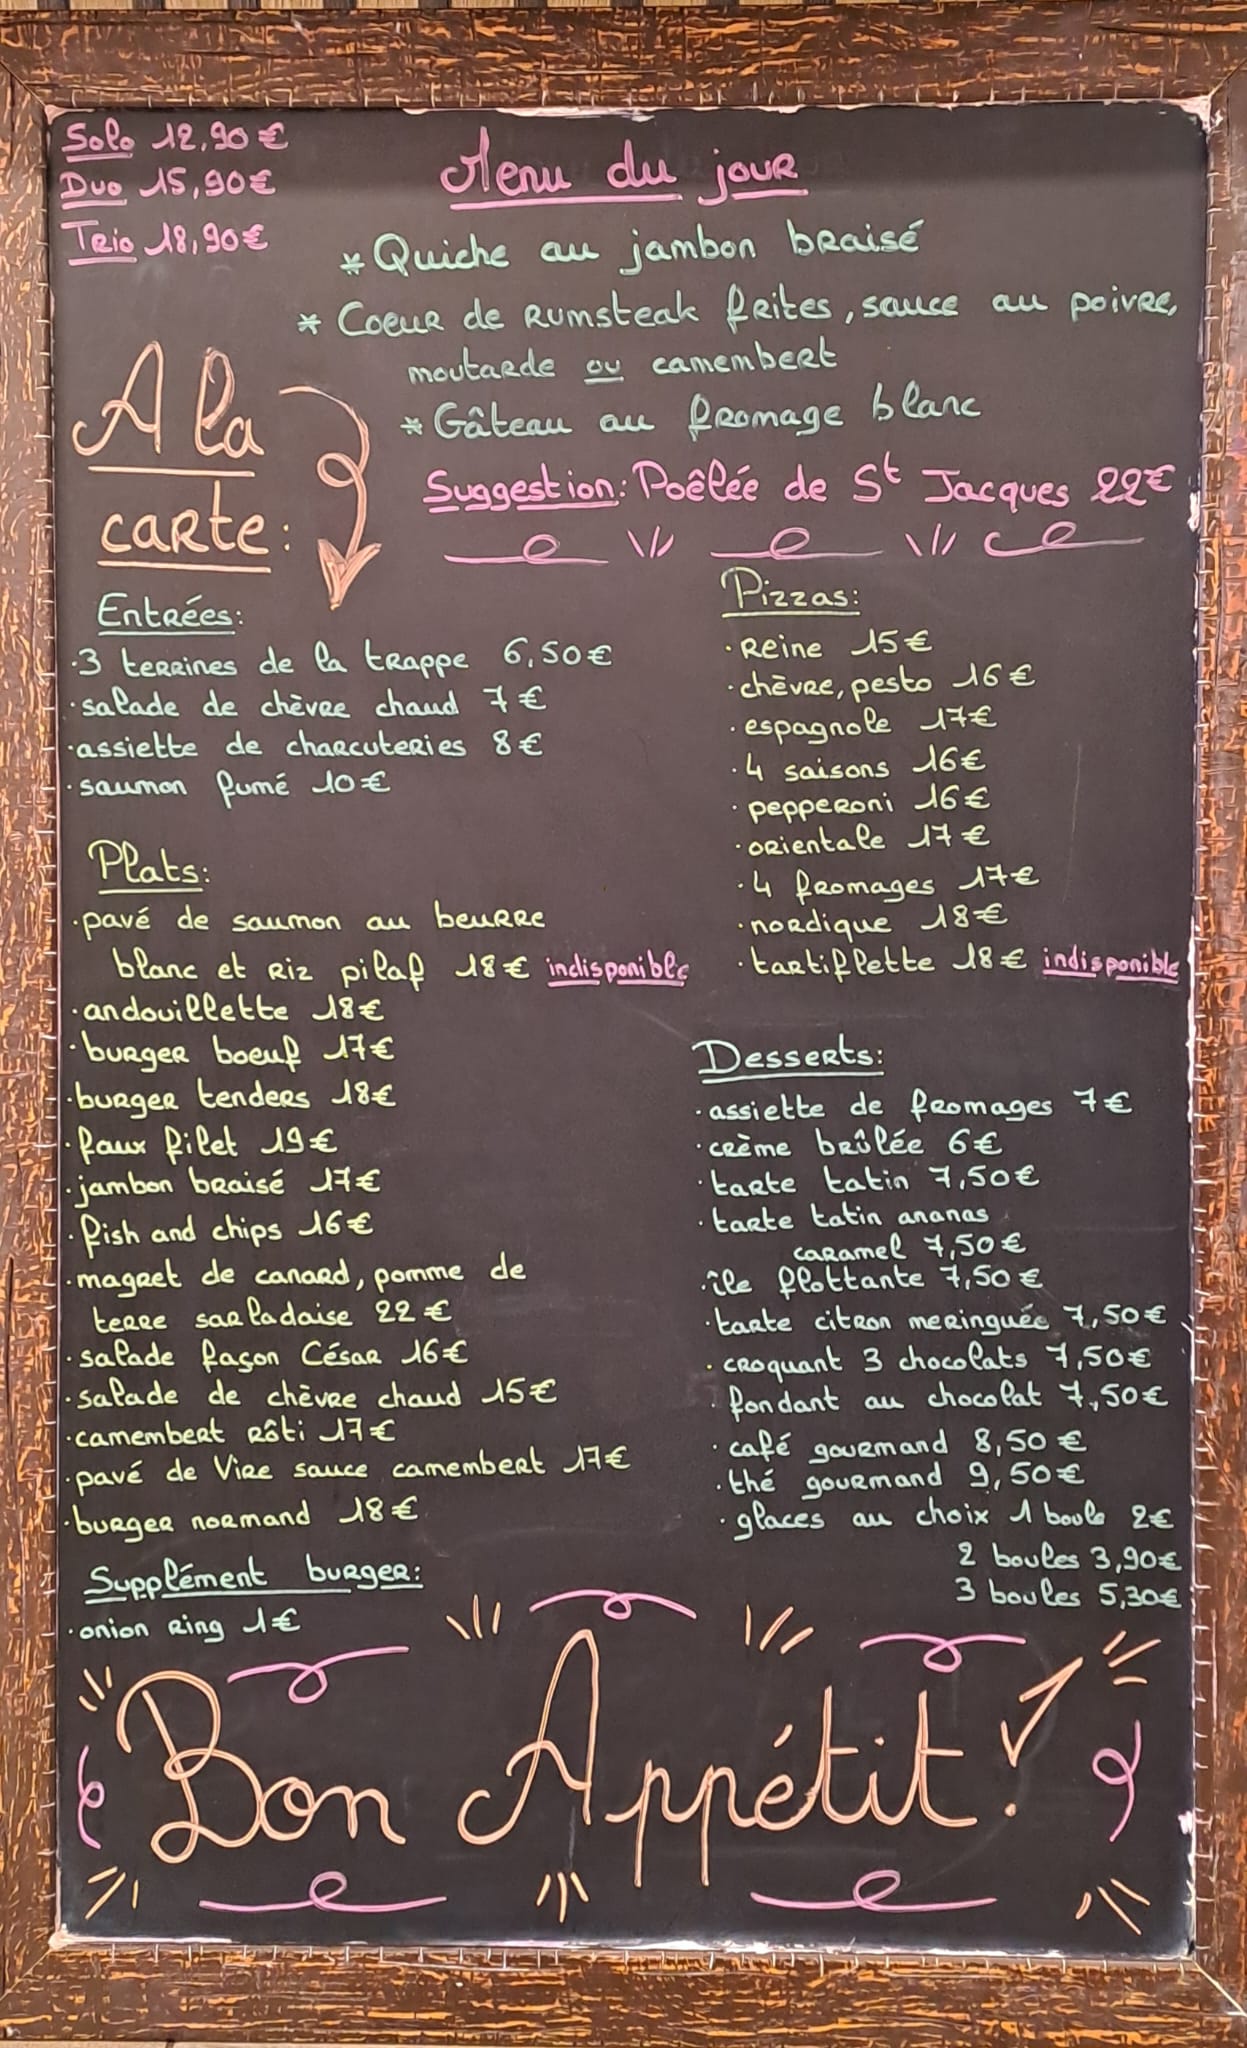 Solo 12,90€
Duo 15,90€
Trio 18,90€
Menu du jour
* Quiche au jambon braisé
* Coeur de Rumsteak frites, sauce au poivre,
moutarde ou camembert
* Gâteau au fromage blanc
Suggestion: Poêlée de St Jacques 22€
A la
carte:
Entrées:
·3 terrines de la trappe 6,50€
·salade de chèvre chaud 7€
·assiette de charcuteries 8€
·saumon fumé 10€
Plats:
·pavé de saumon au beurre
blanc et riz pilaf 18€ indisponible
·andouillette 18€
·burger boeuf 17€
·burger tenders 18€
·faux filet 19€
·jambon braisé 17€
·fish and chips 16€
·magret de canard, pomme de
terre sarladaise 22€
·salade façon César 16€
·salade de chèvre chaud 15€
·camembert rôti 17€
·pavé de Vire sauce camembert 17€
·burger normand 18€
Supplément burger:
·onion ring 1€
Pizzas:
·Reine 15€
·chèvre, pesto 16€
·espagnole 17€
·4 saisons 16€
·pepperoni 16€
·orientale 17€
·4 fromages 17€
·nordique 18€
·tartiflette 18€ indisponible
Desserts:
·assiette de fromages 7€
·crème brûlée 6€
·tarte tatin 7,50€
·tarte tatin ananas
caramel 7,50€
·île flottante 7,50€
·tarte citron meringuée 7,50€
·croquant 3 chocolats 7,50€
·fondant au chocolat 7,50€
·café gourmand 8,50€
·thé gourmand 9,50€
·glaces au choix 1 boule 2€
2 boules 3,90€
3 boules 5,30€
Bon Appétit!